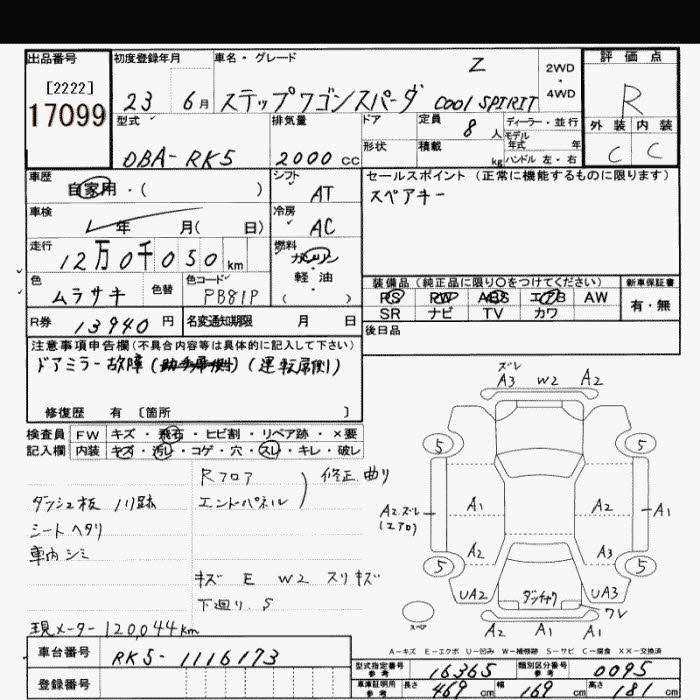 出品番号
[2222]
17099
初度登録年月
23 6月
車名・グレード
ステップワゴンスパーダ Z COOL SPIRIT
2WD
・
4WD
評価点
R
外装 内装
C C
型式
DBA-RK5
排気量
2000 cc
ドア
形状
定員
8 人
積載
kg
ディーラー・並行
モデル
年式 年
ハンドル 左・右
車歴
自家用・( )
シフト
AT
車検
年 月( 日)
冷房
AC
走行
12万0千050 km
燃料
ガソリン
軽・油
( )
色
ムラサキ
色替
色コード
PB81P
R券
13940 円
名変通知期限 月 日
セールスポイント (正常に機能するものに限ります)
スペアキー
装備品 (純正品に限り○をつけてください)
PS PW ABS エアB AW
SR ナビ TV カワ
新車保証書
有・無
後日品
注意事項申告欄(不具合内容等は具体的に記入して下さい)
ドアミラー故障 (助手席側) (運転席側)
修復歴 有 〔箇所 〕
検査員 FW キズ・飛石・ヒビ割・リペア跡・×要
記入欄 内装 キズ・汚レ・コゲ・穴・スレ・キレ・破レ
Rフロア
エンドパネル
修正、曲り
ダッシュ板 ノリ跡
シートヘタリ
車内シミ
キズ E W2 スリキズ
下廻り S
現メーター 120,044km
ズレ
A3 W2 A2
5 5
A2、ズレ
(エアロ)
A1 A2 A1
A2 A3
5 5
UA2 ダンチャク UA3
ワレ
スペア
A2 A1 A1
A-キズ E-エクボ U-凹み W-補修跡 S-サビ C-腐食 XX-交換済
車台番号
RK5-1116173
登録番号
型式指定番号
参考
16365
類別区分番号
参考
0095
車庫証明用
参考
長さ 469 cm 幅 169 cm 高さ 181 cm